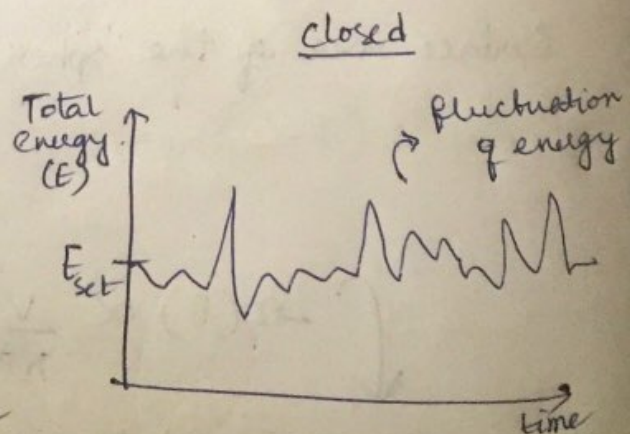 closed
Total
energy
(E)
fluctuation
of energy
E set
time